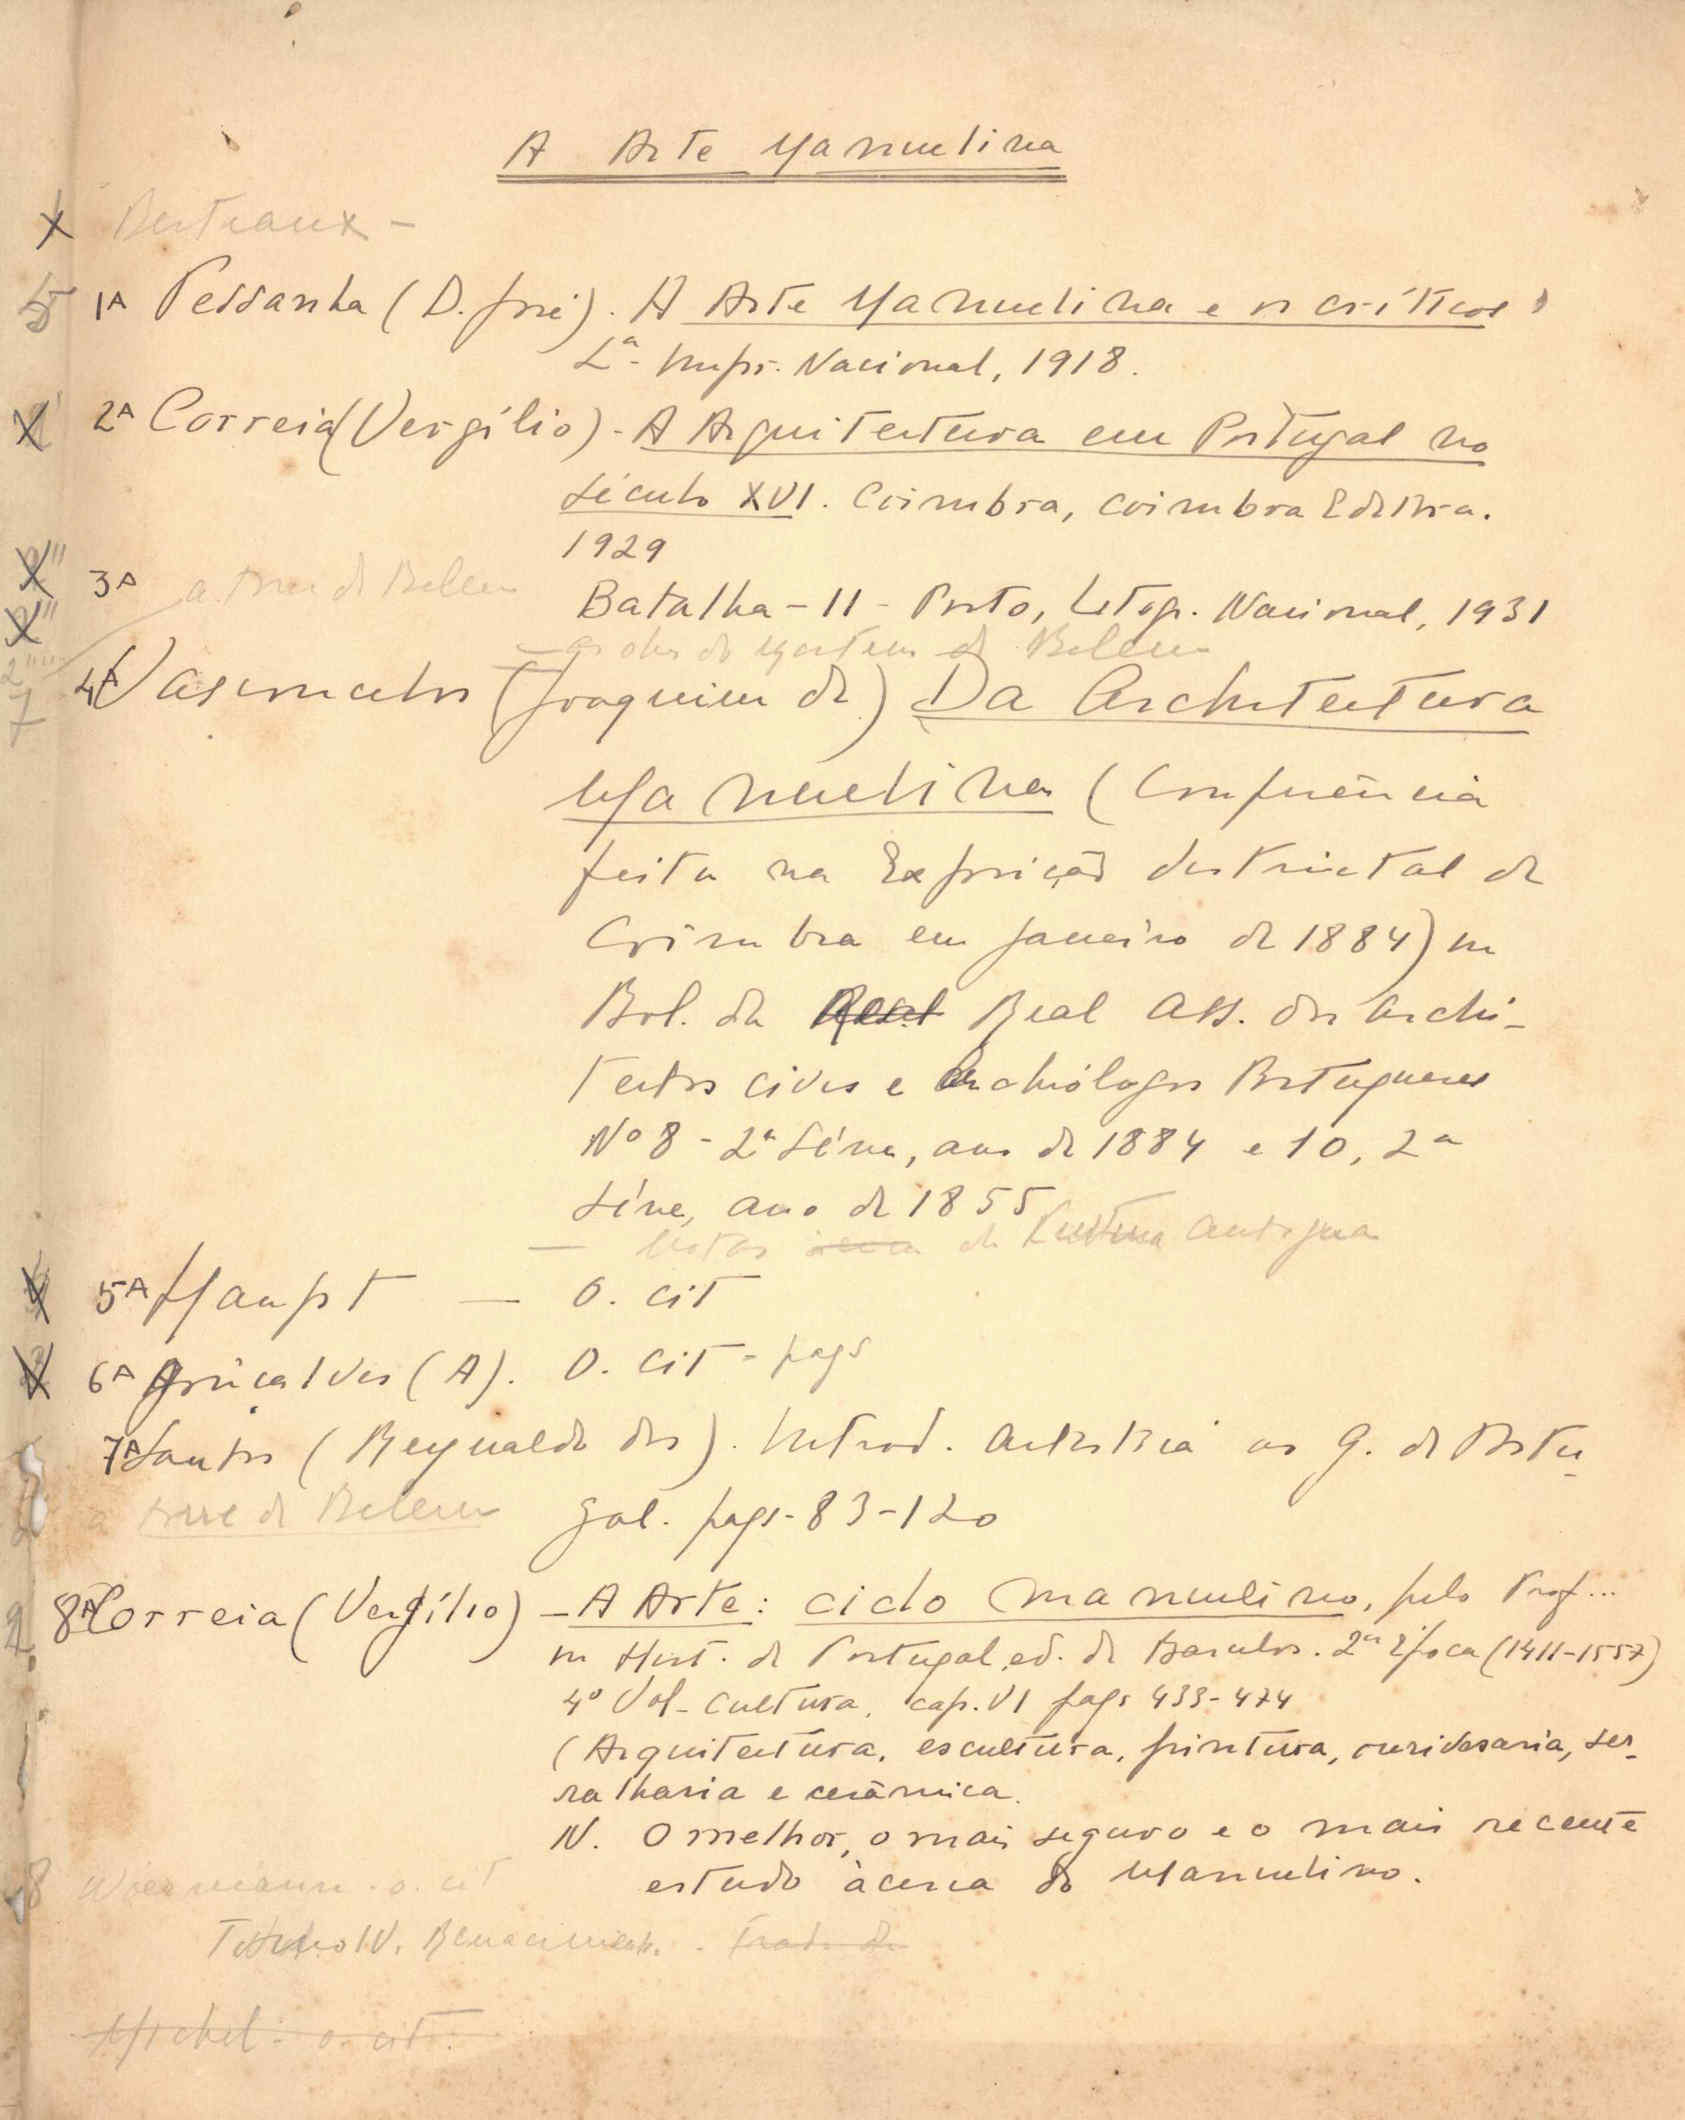 A Arte Manuelina
X Berteaux -
5 1A Pessanha (D. José). A Arte Manuelina e os críticos,
Lª- Impr. Nacional, 1918.
2A Correia (Vergílio) - A Arquitectura em Portugal no
século XVI. Coimbra, Coimbra Editora.
1929
3A a torre de Belem
Batalha - II - Porto, Litogr. Nacional, 1931
- as obras do Mosteiro de Belem
7 4A Vasconcelos (Joaquim de) Da Architectura
Manuelina (Conferência
feita na Exposição districtal de
Coimbra em Janeiro de 1884) in
Bol. da Real Real Ass. dos Archi-
tectos civis e Archiólogos Portugueses
Nº 8 - 2ª Série, ano de 1884 e 10, 2ª
série, ano de 1855
- Notas de Lustura Antigua
5A Haupt - O. cit
6A Gonçalves (A). O. cit - pags
7A Santos (Reynaldo dos). Introd. Artística ao G. de Portu-
gal. pags. 83-120
a torre de Belem
2 8A Correia (Vergílio) - A Arte: ciclo manuelino, pelo Prof...
in Hist. de Portugal, ed. de Barcelos. 2ª Época (1411-1557)
4º Vol- Cultura, cap. VI pags 433-474
(Arquitectura, escultura, pintura, ourivesaria, ser-
ralharia e cerâmica.
N. O melhor, o mais seguro e o mais recente
estudo àcerca do Manuelino.
8 Woermann. o. cit
Tomo IV. Renacimiento. Trad. de
Michel - o. cit.